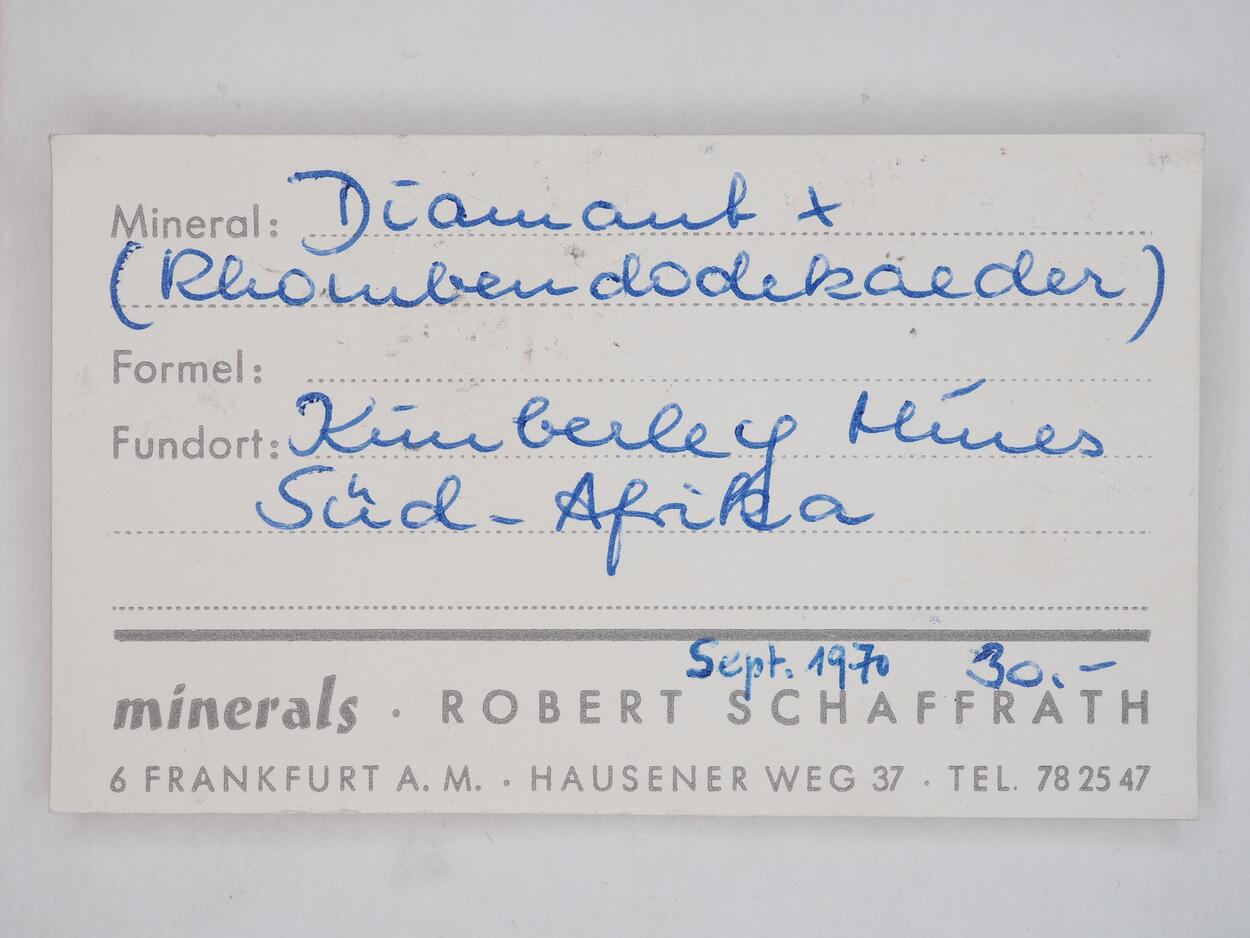 Mineral: Diamant x
(Rhombendodekaeder)
Formel:
Fundort: Kimberley Mines
Süd-Afrika
Sept. 1970 30.-
minerals · ROBERT SCHAFFRATH
6 FRANKFURT A. M. · HAUSENER WEG 37 · TEL. 78 25 47